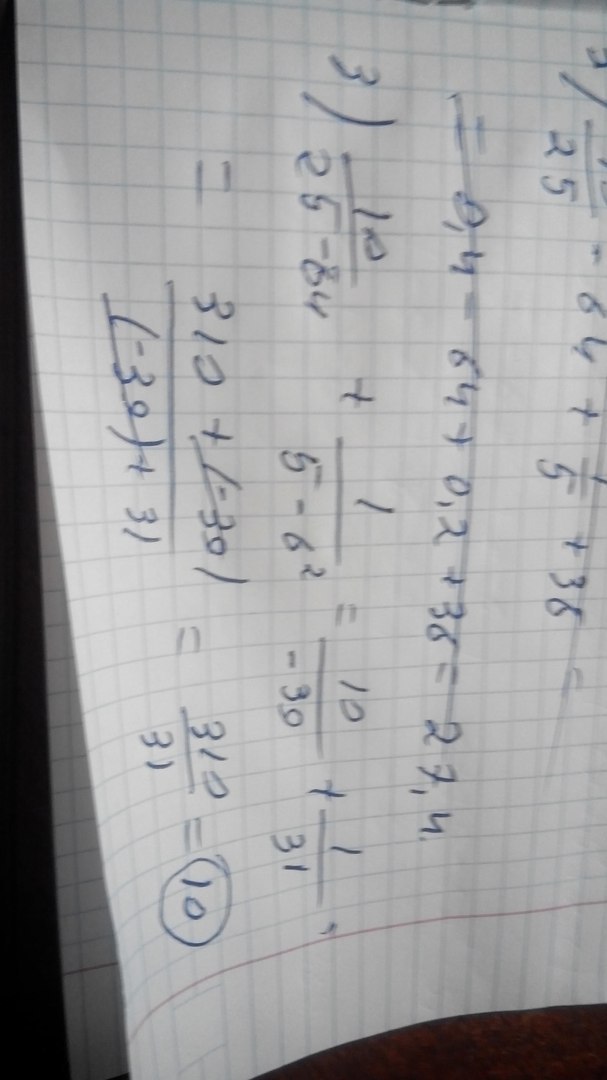 / 25 - 64 + 1/5 + 36 =
= 0,4 - 64 + 0,2 + 36 = 27,4
3) 10/25-64 + 1/5-6² = 10/-39 + 1/31
= 310 + (-39)/(-39) + 31 = 310/31 = 10